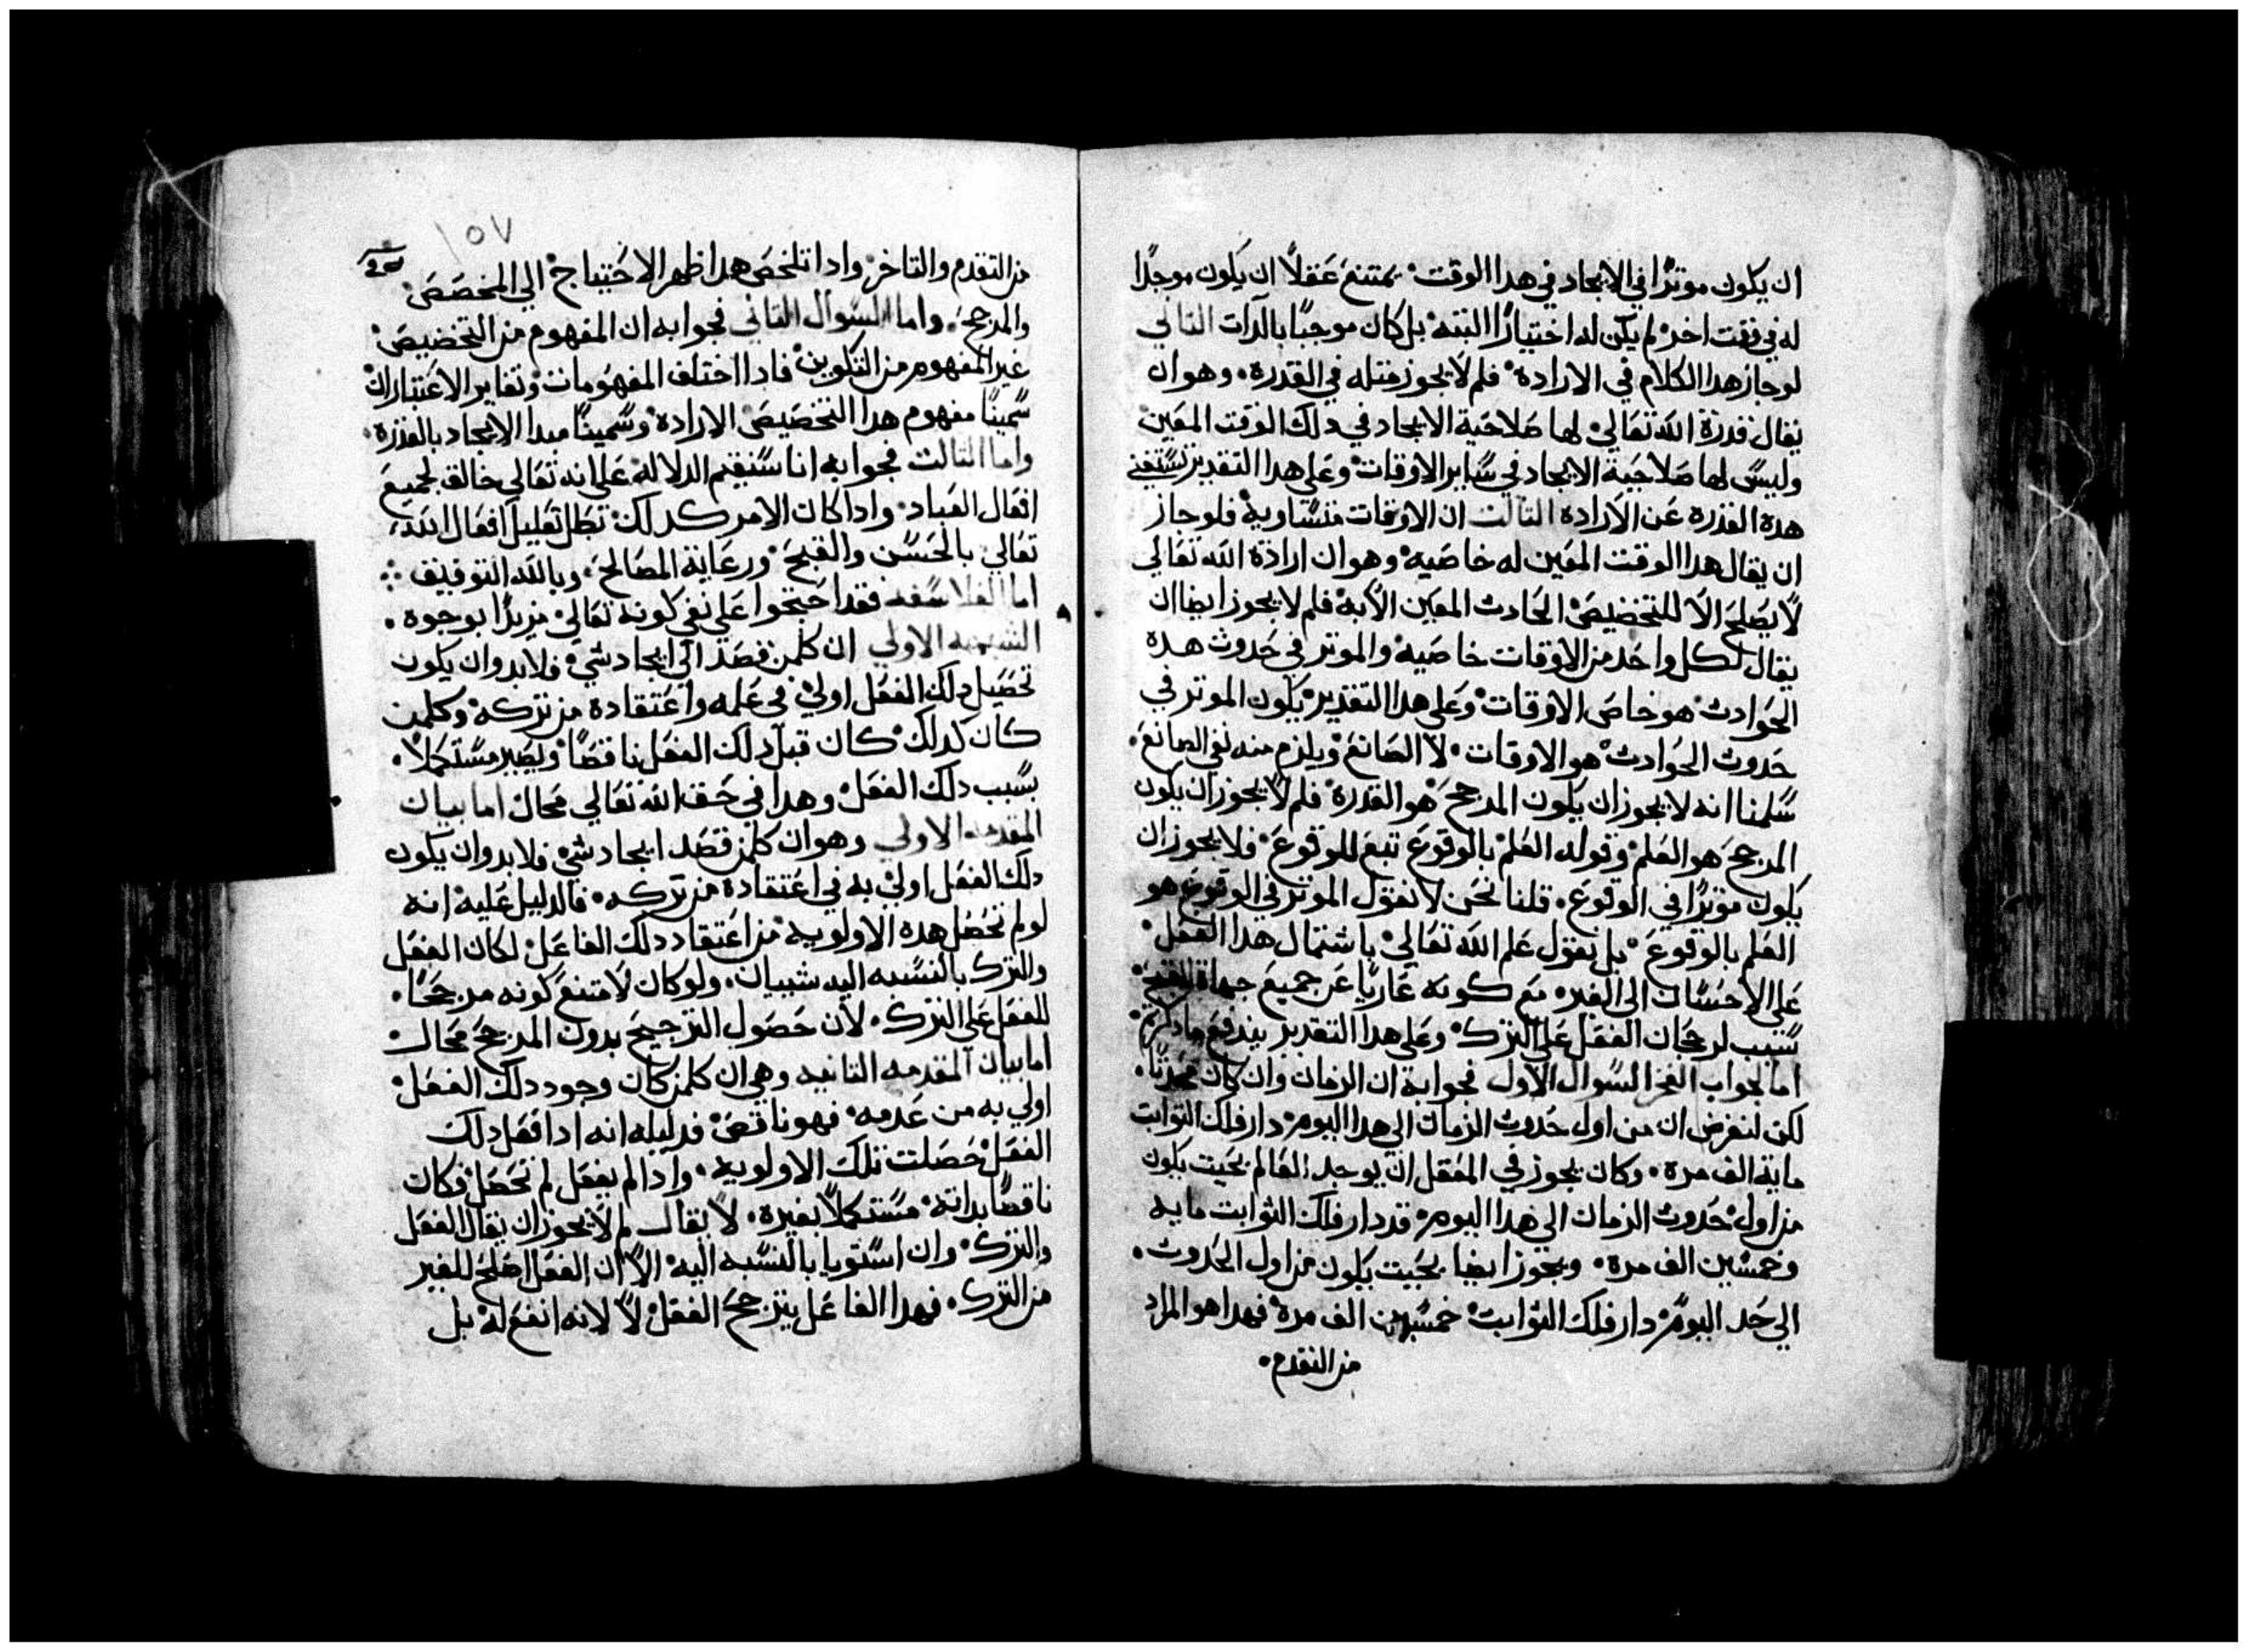 ان يكون موترًا في الايجاد في هدا الوقت يمتنع عقلًا ان يكون موجدًا
له في وقت اخر لم يكن له اختيارًا البته بل كان موجبًا بالدات التاني
لو جاز هدا الكلام في الارادة فلم لا يجوز متله في القدرة وهو ان
يقال قدرة الله تعالي لها صلاحية الايجاد في دلك الوقت المعين
وليس لها صلاحية الايجاد في ساير الاوقات وعلي هدا التقدير تستغني
هدة القدرة عن الارادة التالت ان الاوقات متساوية فلو جاز
ان يقال هدا الوقت المعين له خاصية وهو ان ارادة الله تعالي
لا يصلح الا للتخضيص الحادث المعين الابه فلم لا يجوز ايضا ان
يقال لكل واحد من الاوقات خاصية والموتر في حدوث هدة
الحوادث هو خاص الاوقات وعلي هدا التقدير يكون الموتر في
حدوث الحوادث هو الاوقات لا الصانع ويلزم منه نفي الصانع
سلمنا انه لا يجوز ان يكون المرجح هو القدرة فلم لا يجوز ان يكون
المرجح هو العلم وقوله العلم بالوقوع تبع للوقوع فلا يجوز ان
يكون موترًا في الوقوع قلنا نحن لا نقول الموتر في الوقوع هو
العلم بالوقوع بل نقول علم الله تعالي باشتمال هدا الفعل
علي الاحسان الي الغير مع كونه عاريًا عن جميع جهاة القبح
سبب لرجحان الفعل علي الترك وعلي هدا التقدير يندفع ما دكرتم
اما لجواب الفخر السوال الاول فجوابة ان الزمان وان كان محدثًا
لكن لنفرض ان من اول حدوث الزمان الي هدا اليوم دار فلك التوابت
ماية الف مرة وكان يجوز في العقل ان يوجد العالم بحيت يكون
من اول حدوث الزمان الي هدا اليوم قد دار فلك الثوابت مايه
وخمسين الف مرة ويجوز ايضا بحيت يكون من اول الحدوث
الي حد اليوم دار فلك الثوابت خمسين الف مرة فهدا هو المراد
من التقدم
١٥٧
من التقدم والتاخر وادا تلخص هدا ظهر الاحتياج الي المخصص
والمرجح واما السوال التاني فجوابه ان المفهوم من التخضيص
غير المفهوم من التكوين فادا اختلف المفهومات وتغاير الاعتبارات
سمينا مفهوم هدا التخصيص الارادة وسمينا مبدا الايجاد بالقدرة
واما التالت فجوابه انا سنقيم الدلاله علي انه تعالي خالق لجميع
افعال العباد وادا كان الامر كدلك بطل تعليل افعال الله
تعالي بالحسن والقبح ورعاية المصالح وبالله التوفيق
اما الفلاسفه فقد احتجوا علي نفي كونه تعالي مريدًا بوجوه
الشبهه الاولي ان كلمن قصد الي ايجاد شي فلابد وان يكون
تحصيل دلك الفعل اولي في علمه واعتقادة من تركه وكلمن
كان كدلك كان قبل دلك الفعل ناقصًا ويصير مستكملًا
بسبب دلك الفعل وهدا في حق الله تعالي محال اما بيان
المقدمه الاولي وهو ان كلمن قصد ايجاد شي فلابد وان يكون
دلك الفعل اولي به في اعتقادة من تركه فالدليل عليه انه
لو لم تحصل هده الاولويه من اعتقاد دلك الفاعل لكان الفعل
والترك بالنسبه اليه شيبان ولو كان لامتنع كونه مرجحًا
للفعل علي الترك لان حصول الترجيح بدون المرجح محال
اما بيان المقدمه التانيه وهي ان كلمن كان وجود دلك الفعل
اولي به من عدمه فهو ناقص فدليله انه ادا فعل دلك
الفعل حصلت تلك الاولويه وادا لم يفعل لم تحصل فكان
ناقصًا بداته مستكملًا بغيرة لا يقال لم لا يجوز ان يقال الفعل
والترك وان استويا بالنسبه اليه الا ان الفعل اصلح للغير
من الترك فهدا الفاعل يترجح الفعل لا لانه انفع له بل